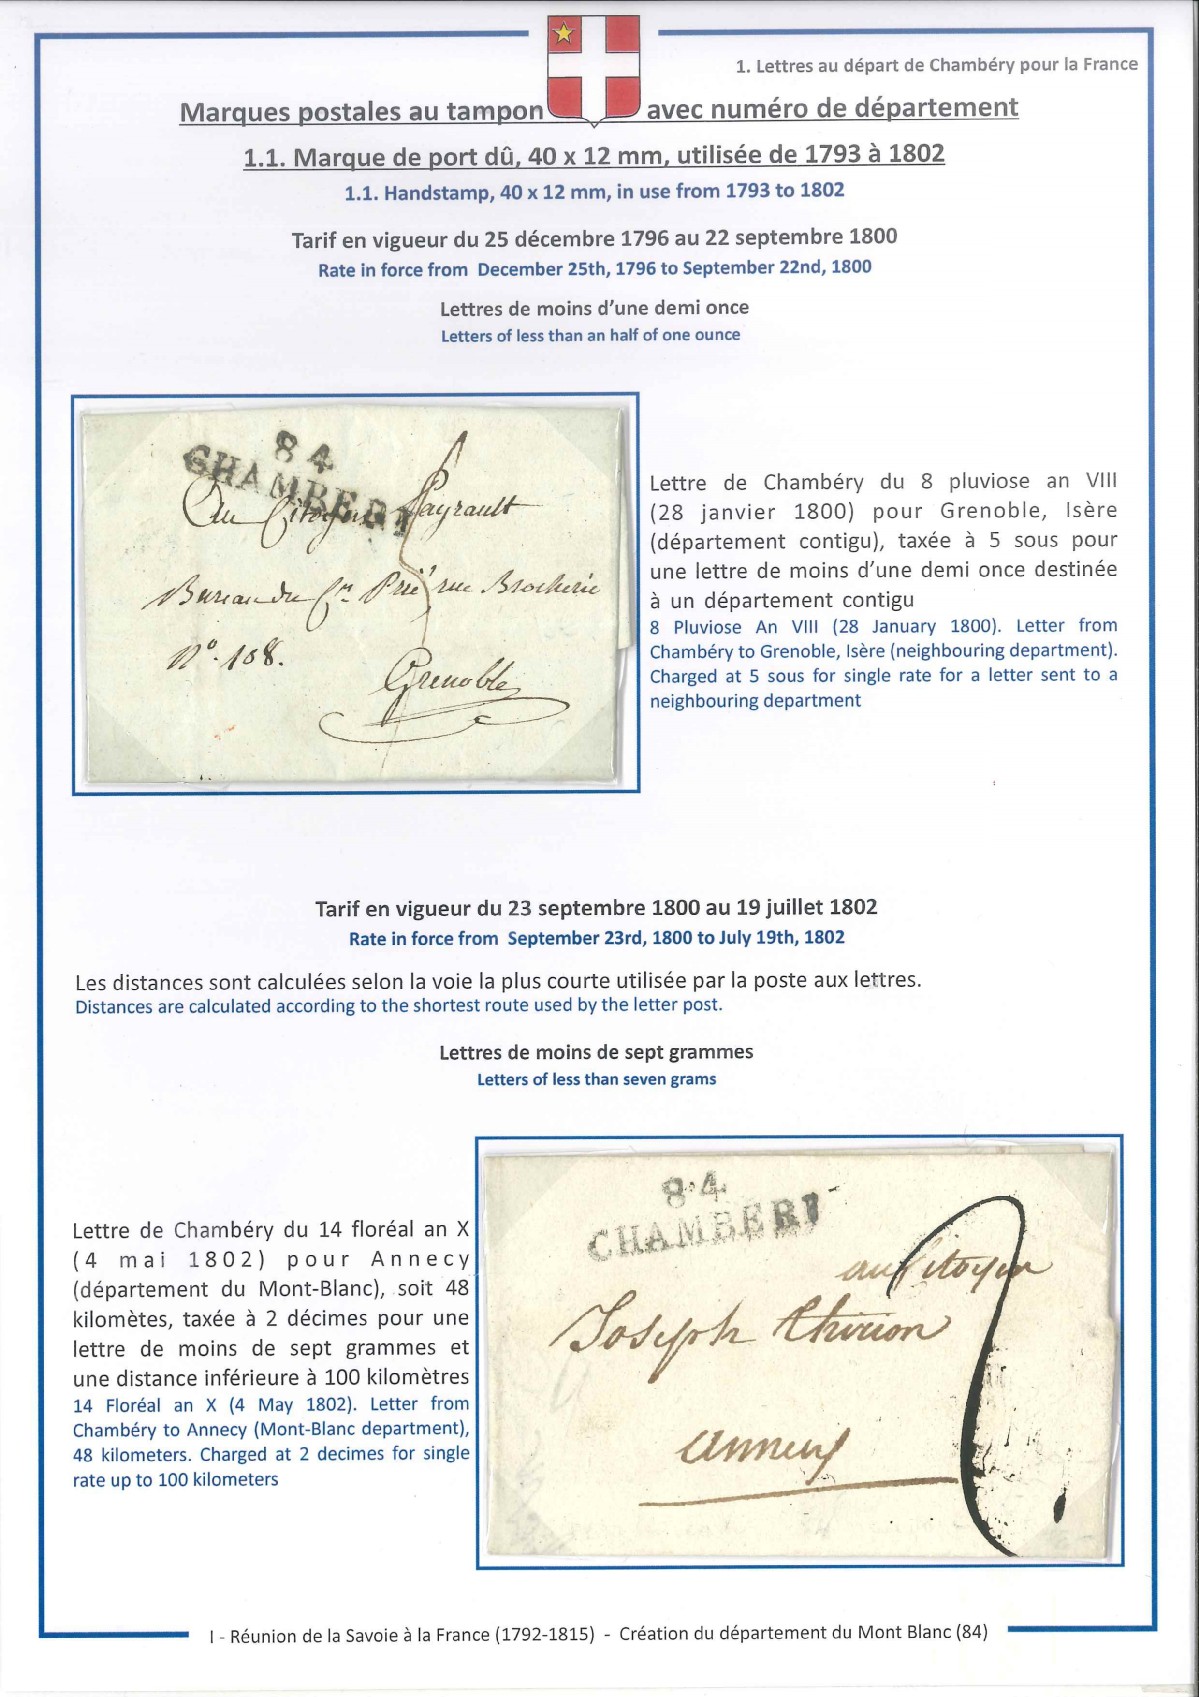 1. Lettres au départ de Chambéry pour la France
Marques postales au tampon avec numéro de département
1.1. Marque de port dû, 40 x 12 mm, utilisée de 1793 à 1802
1.1. Handstamp, 40 x 12 mm, in use from 1793 to 1802
Tarif en vigueur du 25 décembre 1796 au 22 septembre 1800
Rate in force from December 25th, 1796 to September 22nd, 1800
Lettres de moins d'une demi once
Letters of less than an half of one ounce
84
CHAMBERI
Au Citoyen Payrault
Bureau du Cn Prié rue Brocherie
N°. 108.
Grenoble
Lettre de Chambéry du 8 pluviose an VIII
(28 janvier 1800) pour Grenoble, Isère
(département contigu), taxée à 5 sous pour
une lettre de moins d'une demi once destinée
à un département contigu
8 Pluviose An VIII (28 January 1800). Letter from
Chambéry to Grenoble, Isère (neighbouring department).
Charged at 5 sous for single rate for a letter sent to a
neighbouring department
Tarif en vigueur du 23 septembre 1800 au 19 juillet 1802
Rate in force from September 23rd, 1800 to July 19th, 1802
Les distances sont calculées selon la voie la plus courte utilisée par la poste aux lettres.
Distances are calculated according to the shortest route used by the letter post.
Lettres de moins de sept grammes
Letters of less than seven grams
Lettre de Chambéry du 14 floréal an X
(4 mai 1802) pour Annecy
(département du Mont-Blanc), soit 48
kilomètes, taxée à 2 décimes pour une
lettre de moins de sept grammes et
une distance inférieure à 100 kilomètres
14 Floréal an X (4 May 1802). Letter from
Chambéry to Annecy (Mont-Blanc department),
48 kilometers. Charged at 2 decimes for single
rate up to 100 kilometers
84
CHAMBERI
au Citoyen
Joseph Thirion
annecy
I - Réunion de la Savoie à la France (1792-1815) - Création du département du Mont Blanc (84)